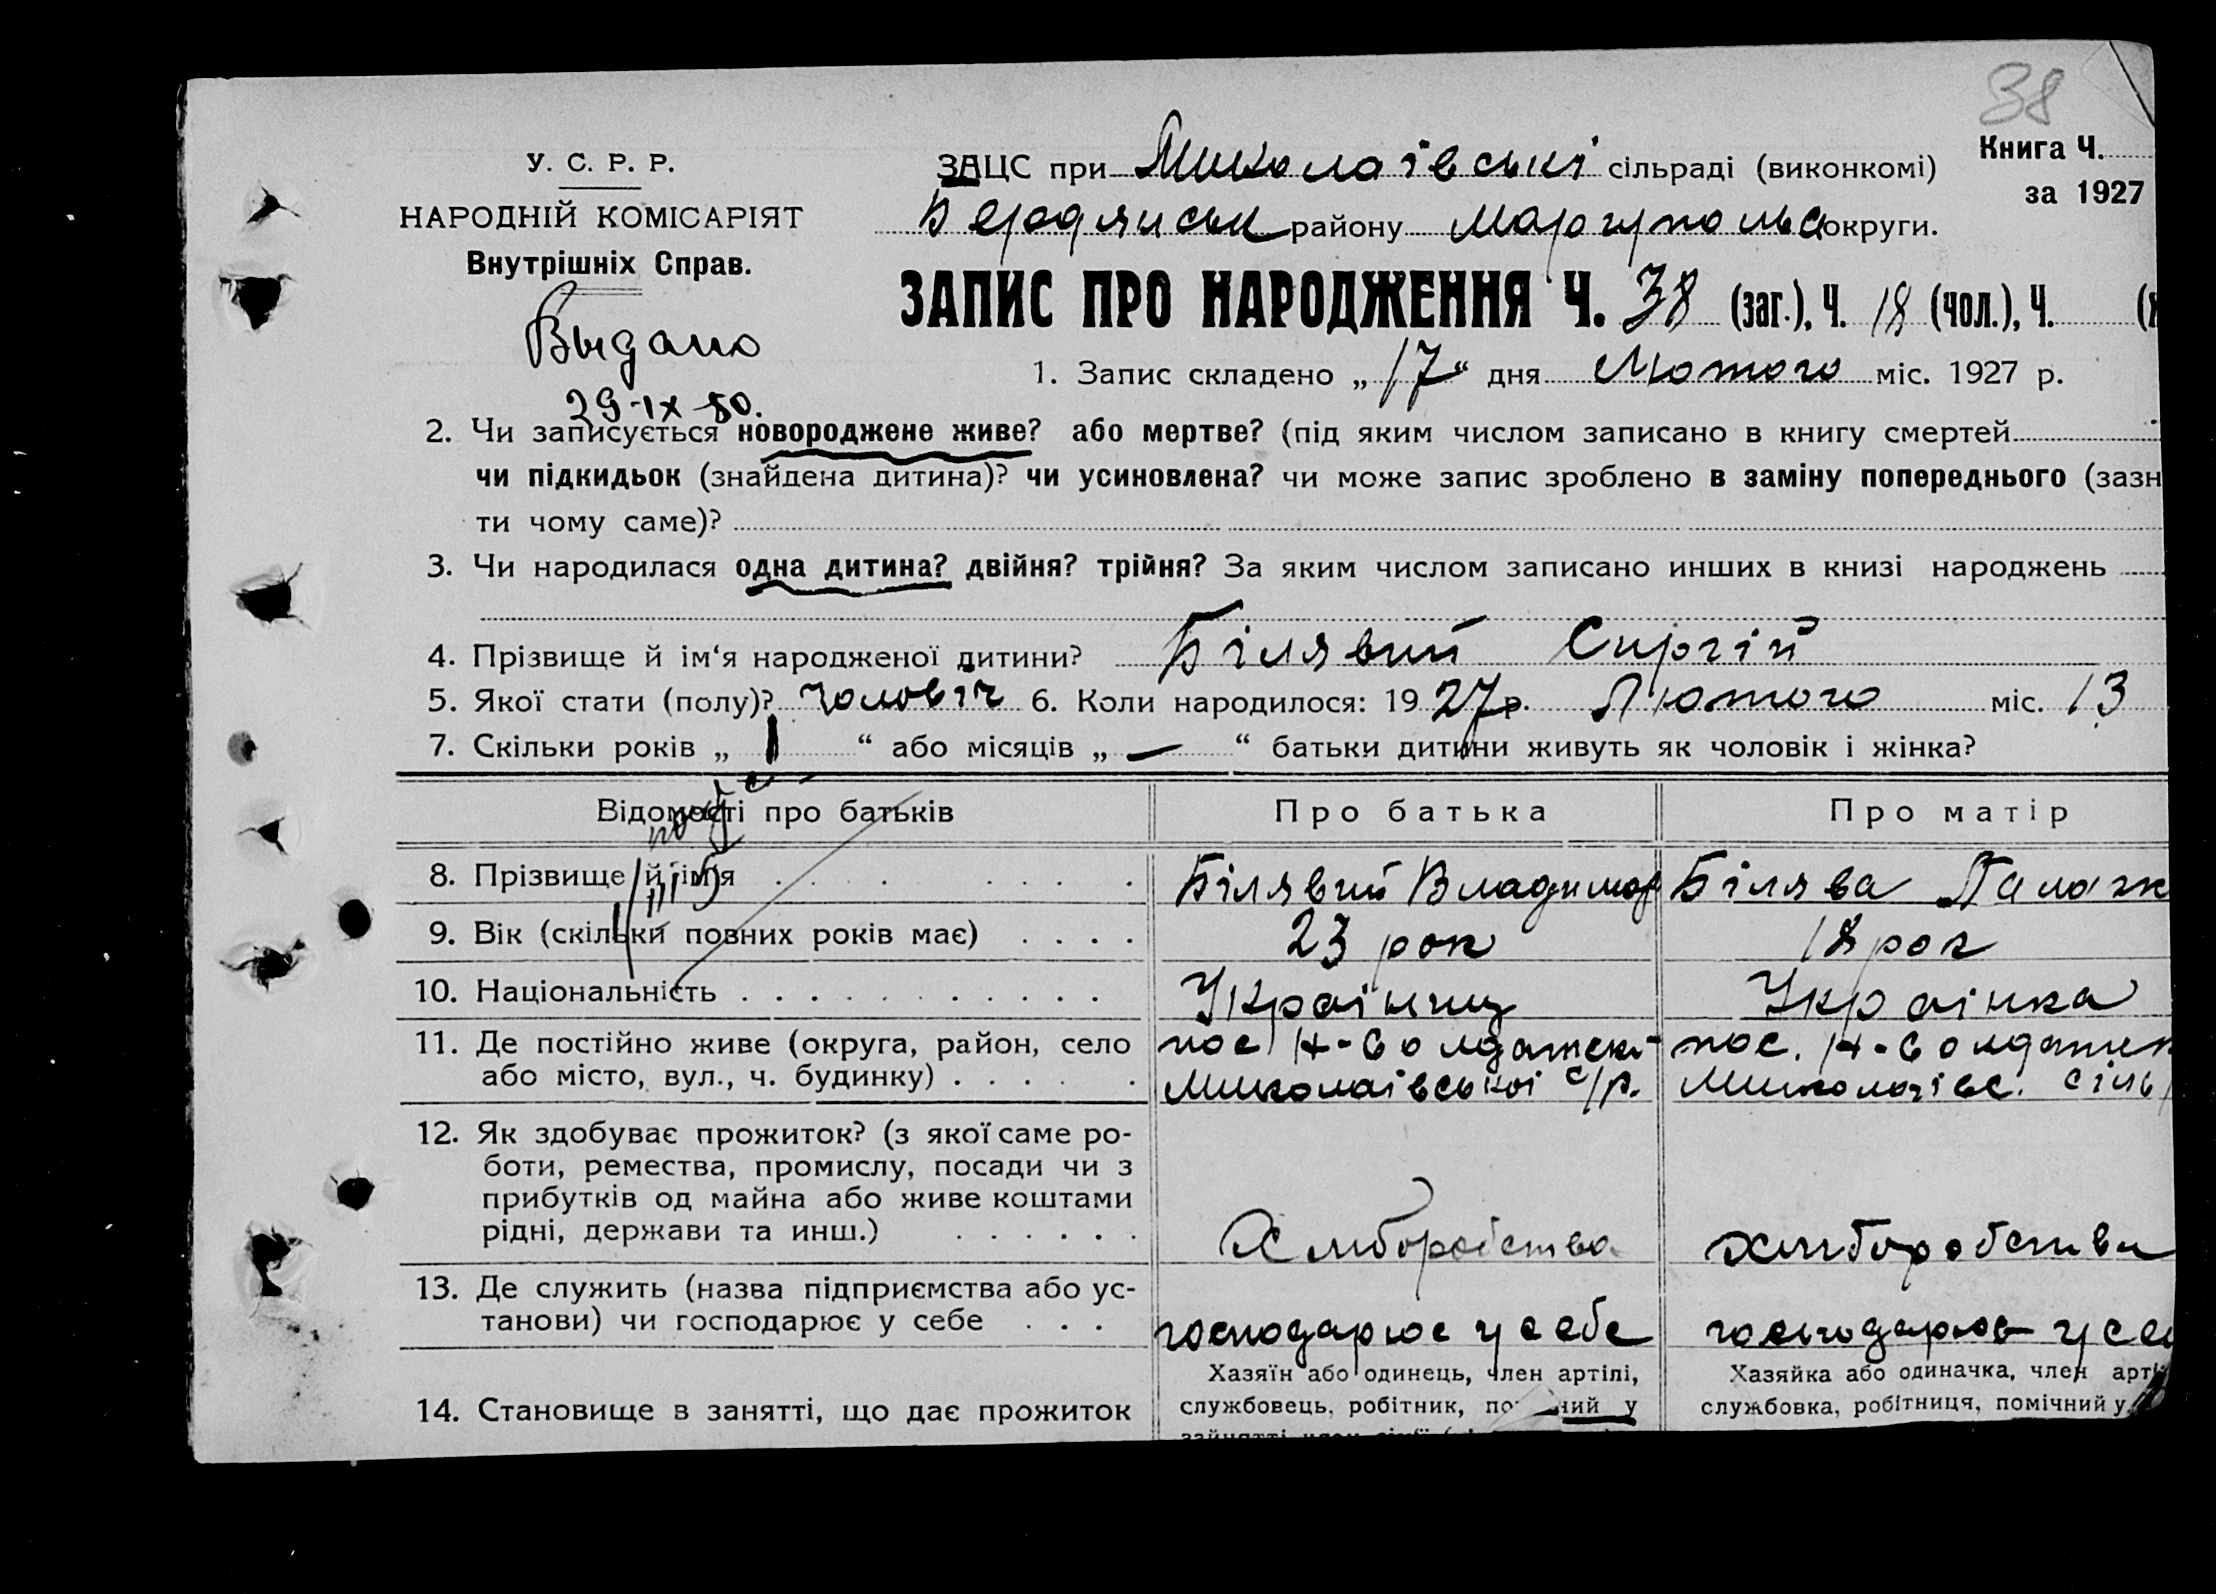 38
У. С. Р. Р.
НАРОДНІЙ КОМІСАРІЯТ
Внутрішніх Справ.
Выдано
29-IX-50.
ЗАЦС при Миколаївські сільраді (виконкомі)
Бердянськ району Маріупольс округи.
Книга Ч.
за 1927
ЗАПИС ПРО НАРОДЖЕННЯ Ч. 38 (заг.), Ч. 18 (чол.), Ч.
1. Запис складено „17“ дня Лютого міс. 1927 р.
2. Чи записується новороджене живе? або мертве? (під яким числом записано в книгу смертей
чи підкидьок (знайдена дитина)? чи усиновлена? чи може запис зроблено в заміну попереднього (зазн
ти чому саме)?
3. Чи народилася одна дитина? двійня? трійня? За яким числом записано инших в книзі народжень
4. Прізвище й ім‘я народженої дитини? Білявий Сиргій
5. Якої стати (полу)? чоловіч 6. Коли народилося: 1927 р. Лютого міс. 13
7. Скільки років „1“ або місяців „—“ батьки дитини живуть як чоловік і жінка?
Відомості про батьків Про батька Про матір
8. Прізвище й ім‘я Білявий Владимир Білява Палажк
9. Вік (скільки повних років має) 23 рок 18 рок
10. Національність Українец Українка
11. Де постійно живе (округа, район, село пос. Н-Солдатськ пос. Н-Солдатск
або місто, вул., ч. будинку) Миколаівськоі с/р. Миколаівс. сіль
12. Як здобуває прожиток? (з якої саме ро-
боти, ремества, промислу, посади чи з
прибутків од майна або живе коштами
рідні, держави та инш.) Хлиборобства хлиборобства
13. Де служить (назва підприємства або ус-
танови) чи господарює у себе господарює у себе господарює у себ
Хазяїн або одинець, член артілі, Хазяйка або одиначка, член арті
14. Становище в занятті, що дає прожиток службовець, робітник, по ний у службовка, робітниця, помічний у